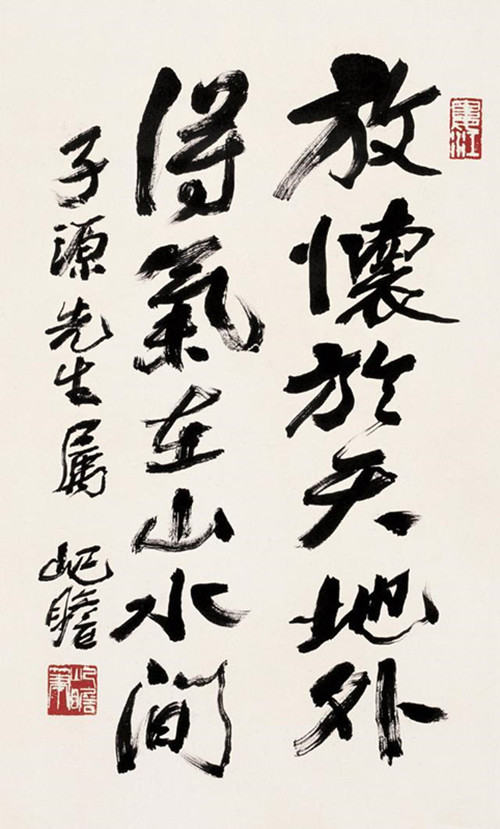 放懷於天地外
得氣在山水間
子源先生屬
屺瞻